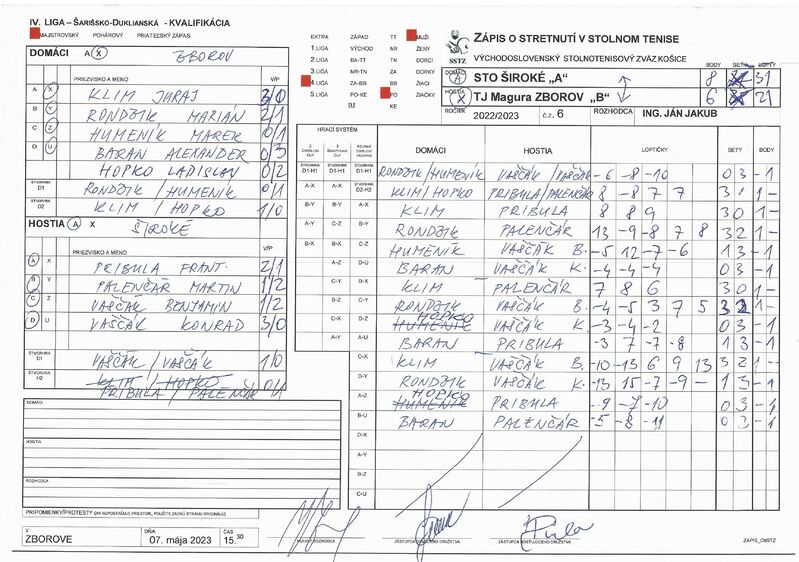 IV. LIGA – ŠARIŠSKO-DUKLIANSKÁ - KVALIFIKÁCIA
MAJSTROVSKÝ POHÁROVÝ PRIATEĽSKÝ ZÁPAS
DOMÁCI A X ZBOROV
PRIEZVISKO A MENO V/P
A X KLIM JURAJ 3/0
B Y RONDZIK MARIÁN 2/1
C Z HUMENÍK MAREK 0/1
D U BARAN ALEXANDER 0/3
HOPKO LADISLAV 0/2
ŠTVORHRA D1 RONDZIK/HUMENÍK 0/1
ŠTVORHRA D2 KLIM / HOPKO 1/0
HOSTIA A X ŠIROKÉ
PRIEZVISKO A MENO V/P
A X PRIBULA FRANT. 2/1
B Y PALENČÁR MARTIN 1/2
C Z VAŠČÁK BENJAMIN 1/2
D U VAŠČÁK KONRAD 3/0
ŠTVORHRA D1 VAŠČÁK/VAŠČÁK 1/0
ŠTVORHRA H2 KLIM / HOPKO
PRIBULA / PALENČÁR 0/1
DOMÁCI
HOSTIA
ROZHODCA
PRIPOMIENKY/PROTESTY (AK NEPOSTAČUJE PRIESTOR, POUŽITE ZADNÚ STRANU ORIGINÁLU)
V ZBOROVE
DŇA 07. mája 2023
ČAS 15.30
EXTRA ZÁPAD TT MUŽI
1.LIGA VÝCHOD NR ŽENY
2.LIGA BA-TT TN DORCI
3.LIGA NR-TN ZA DORKY
4.LIGA ZA-BB BB ŽIACI
5.LIGA PO-KE PO ŽIAČKY
BJ KE
SSTZ
ZÁPIS O STRETNUTÍ V STOLNOM TENISE
VÝCHODOSLOVENSKÝ STOLNOTENISOVÝ ZVÄZ KOŠICE
BODY SETY LOPTY
DOMÁCI A STO ŠIROKÉ „A“ 8 31
HOSTIA X TJ Magura ZBOROV „B“ 6 21
ROČNÍK 2022/2023 č.z. 6 ROZHODCA ING. JÁN JAKUB
HRACÍ SYSTÉM
DOMÁCI HOSTIA LOPTIČKY SETY BODY
RONDZIK/HUMENÍK VAŠČÁK/VAŠČÁK -6 -8 -10 0 3 -1
KLIM/HOPKO PRIBULA/PALENČÁR 8 -8 7 7 3 1 1-
KLIM PRIBULA 8 8 9 3 0 1-
RONDZIK PALENČÁR 13 -9 -8 7 8 3 2 1-
HUMENÍK VAŠČÁK B. -5 12 -7 -6 1 3 -1
BARAN VAŠČÁK K. -4 -4 -4 0 3 -1
KLIM PALENČÁR 7 8 6 3 0 1-
RONDZIK VAŠČÁK B. -4 -5 3 7 5 3 2 1-
HUMENÍK HOPKO VAŠČÁK K. -3 -4 -2 0 3 -1
BARAN PRIBULA -3 7 -7 -8 1 3 -1
KLIM VAŠČÁK B. -10 -13 6 9 13 3 2 1-
RONDZIK VAŠČÁK K. -13 15 -7 -9 - 1 3 -1
HUMENÍK HOPKO PRIBULA -9 -7 -10 0 3 -1
BARAN PALENČÁR -5 -8 -11 0 3 -1
HLAVNÝ ROZHODCA
ZÁSTUPCA DOMÁCEHO DRUŽSTVA
ZÁSTUPCA HOSŤUJÚCEHO DRUŽSTVA
ZAPIS_O6STZ